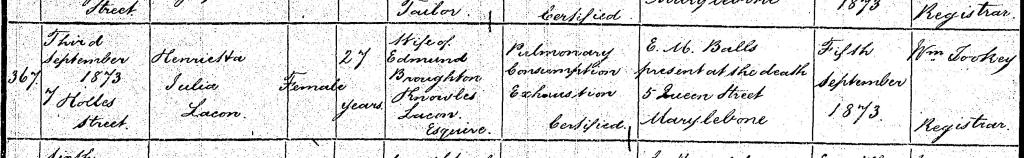 Street. Tailor. Certified. Marylebone 1873 Registrar.
367
Third
September
1873
7 Holles
Street.
Henrietta
Julia
Lacon.
Female
27
years.
Wife of
Edmund
Broughton
Knowles
Lacon.
Esquire.
Pulmonary
Consumption
Exhaustion
Certified.
E. M. Balls
present at the death
5 Queen Street
Marylebone
Fifth
September
1873.
Wm Tookey
Registrar.